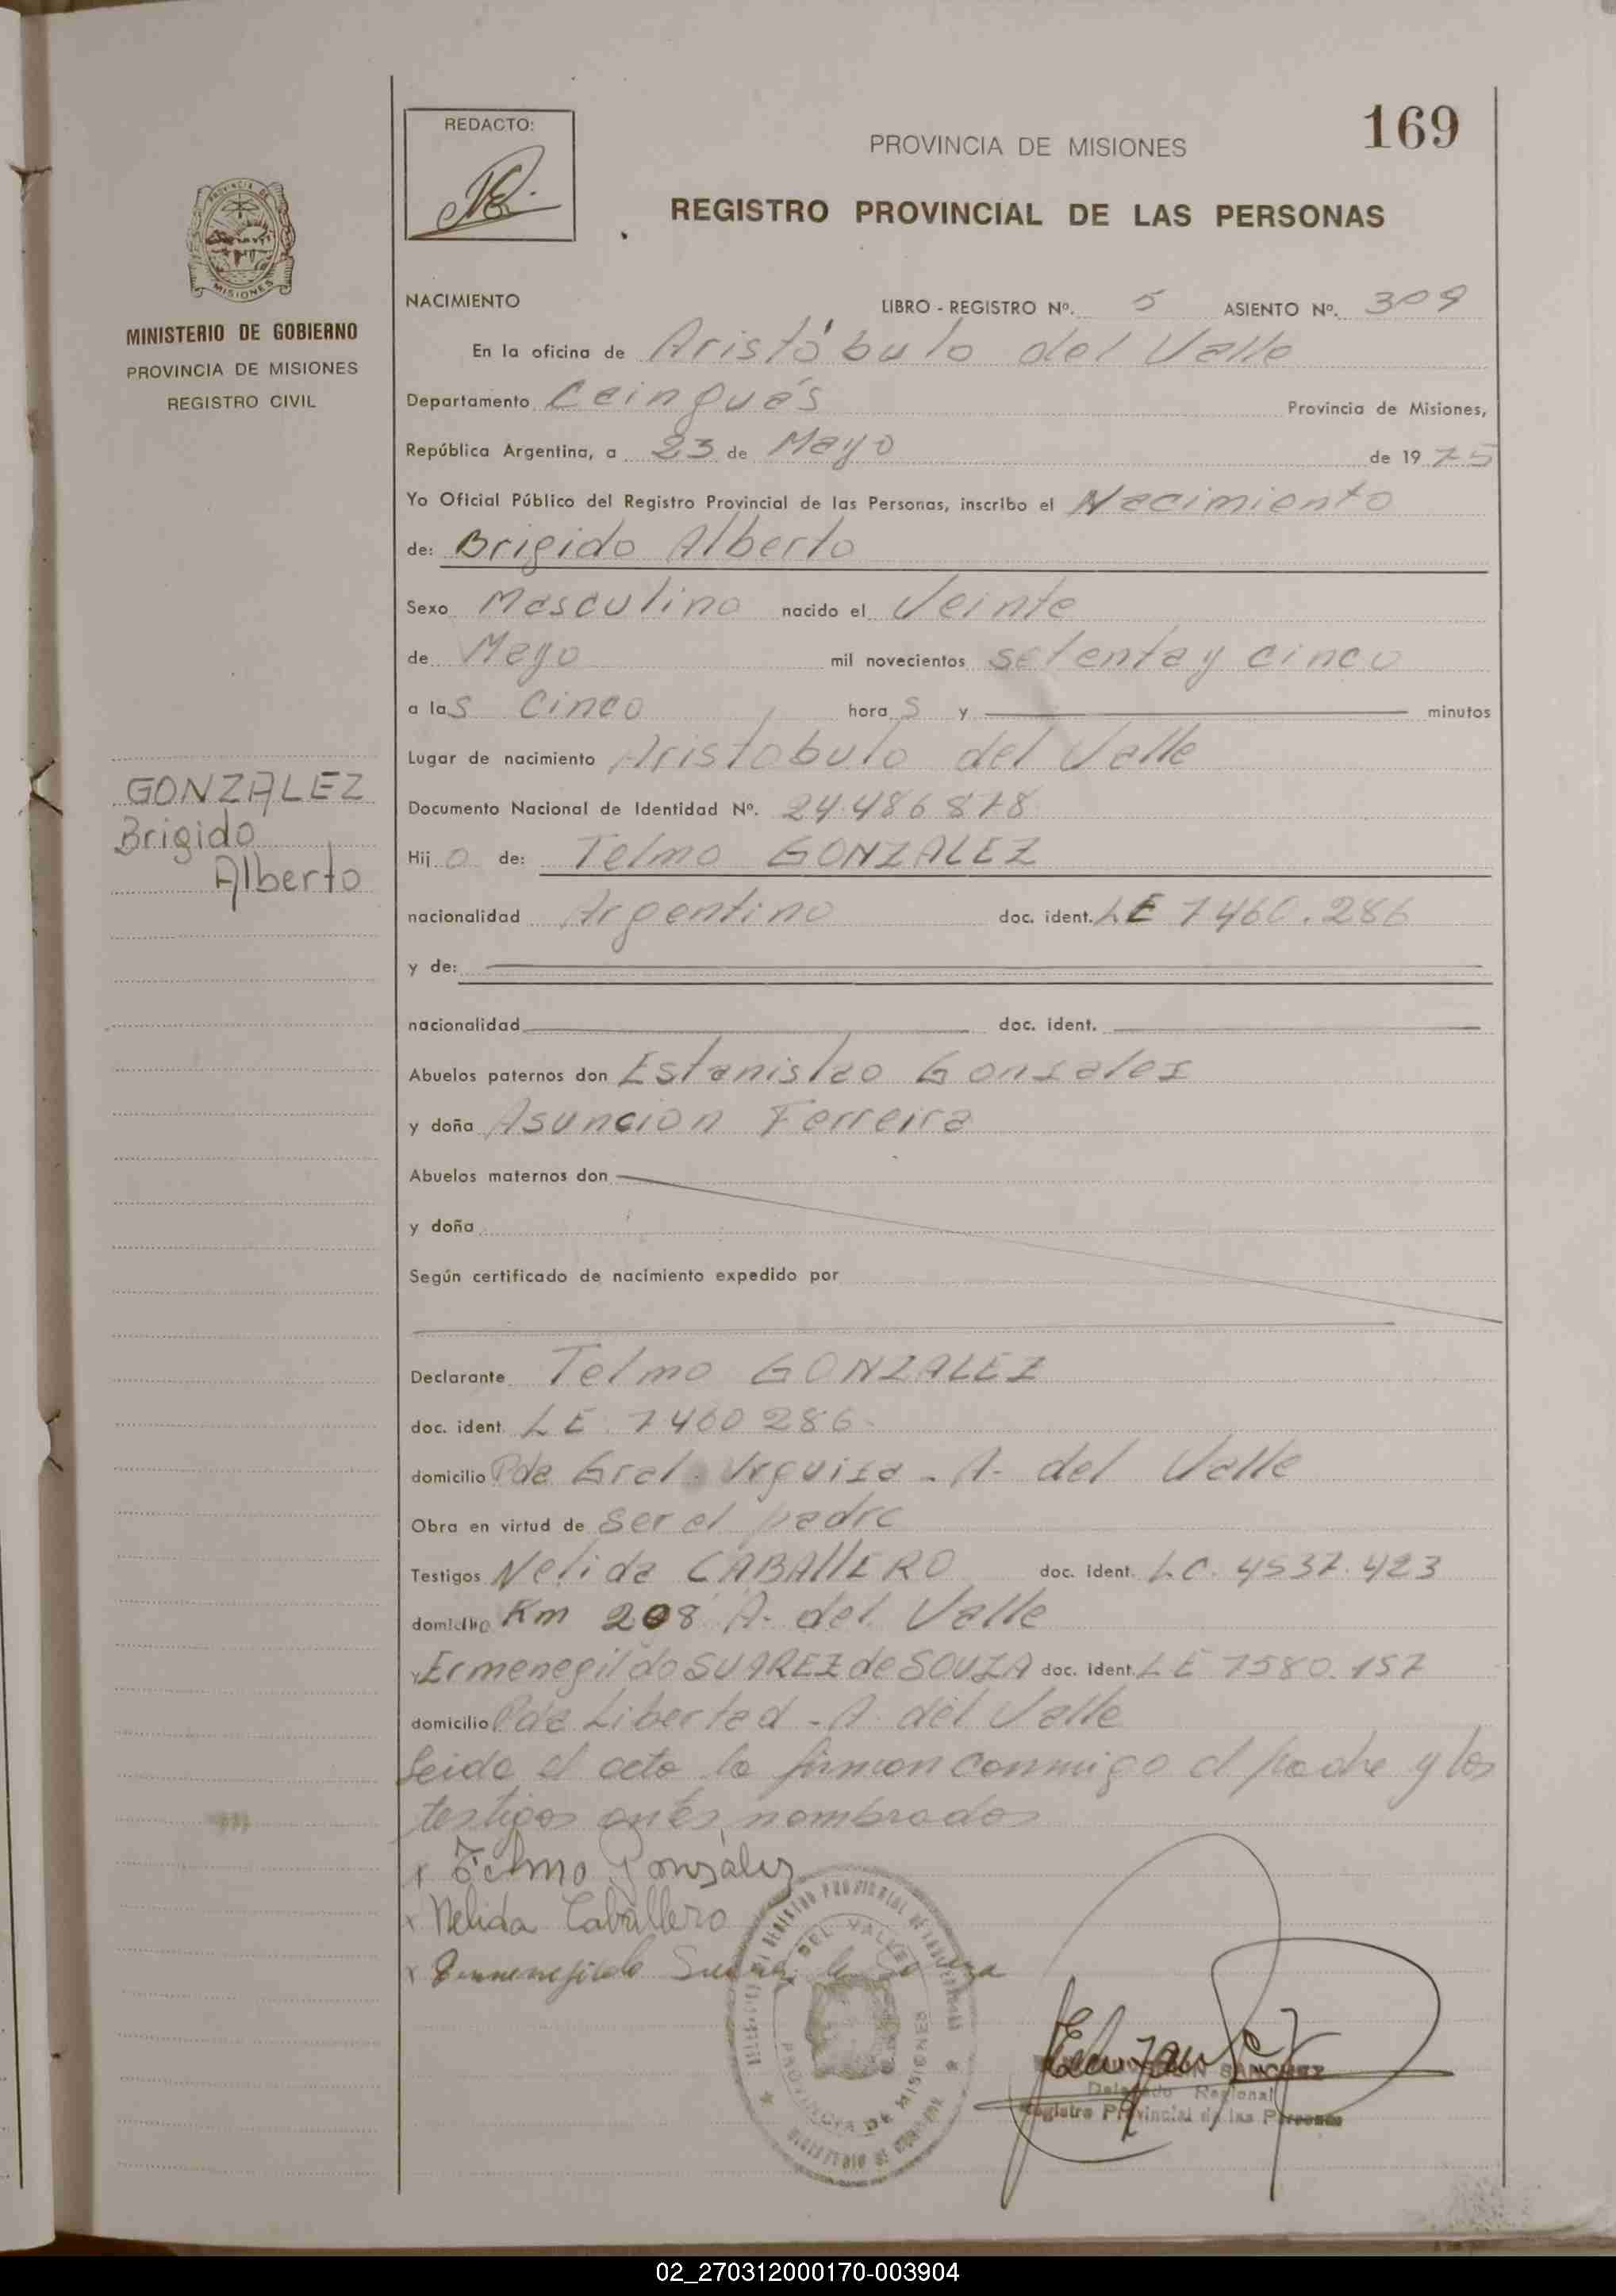 169
REDACTO:
PROVINCIA DE MISIONES
REGISTRO PROVINCIAL DE LAS PERSONAS
MISIONES
MINISTERIO DE GOBIERNO
PROVINCIA DE MISIONES
REGISTRO CIVIL
NACIMIENTO LIBRO - REGISTRO Nº. 5 ASIENTO Nº. 309
En la oficina de Aristóbulo del Valle
Departamento Cainguás Provincia de Misiones,
República Argentina, a 23 de Mayo de 1975
Yo Oficial Público del Registro Provincial de las Personas, inscribo el Nacimiento
de: Brigido Alberto
Sexo Masculino nacido el Veinte
de Mayo mil novecientos setenta y cinco
a las cinco horas y minutos
Lugar de nacimiento Aristobulo del Valle
GONZALEZ
Brigido
Alberto
Documento Nacional de Identidad Nº. 24.486878
Hijo de: Telmo GONZALEZ
nacionalidad Argentino doc. ident. LE 7460.286
y de:
nacionalidad doc. ident.
Abuelos paternos don Estanislao Gonzalez
y doña Asuncion Ferreira
Abuelos maternos don
y doña
Según certificado de nacimiento expedido por
Declarante Telmo GONZALEZ
doc. ident. LE. 7460286.
domicilio Pda Gral. Urquiza - A. del Valle
Obra en virtud de ser el padre
Testigos Nelida CABAllERO doc. ident. LC. 4537.423
domicilio Km 208 A. del Valle
y Ermenegildo SUAREZ de SOUZA doc. ident. LE 7580.157
domicilio Pda Libertad - A. del Valle
Leida el acta la firman conmigo el padre y los
testigos antes nombrados
x Telmo Gonzalez
x Nelida Caballero
x Ermenegildo Suarez de Souza
DEL VALLE
PROVINCIA DE MISIONES
SANCHEZ
Delegado Regional
Registro Provincial de las Personas
02_270312000170-003904